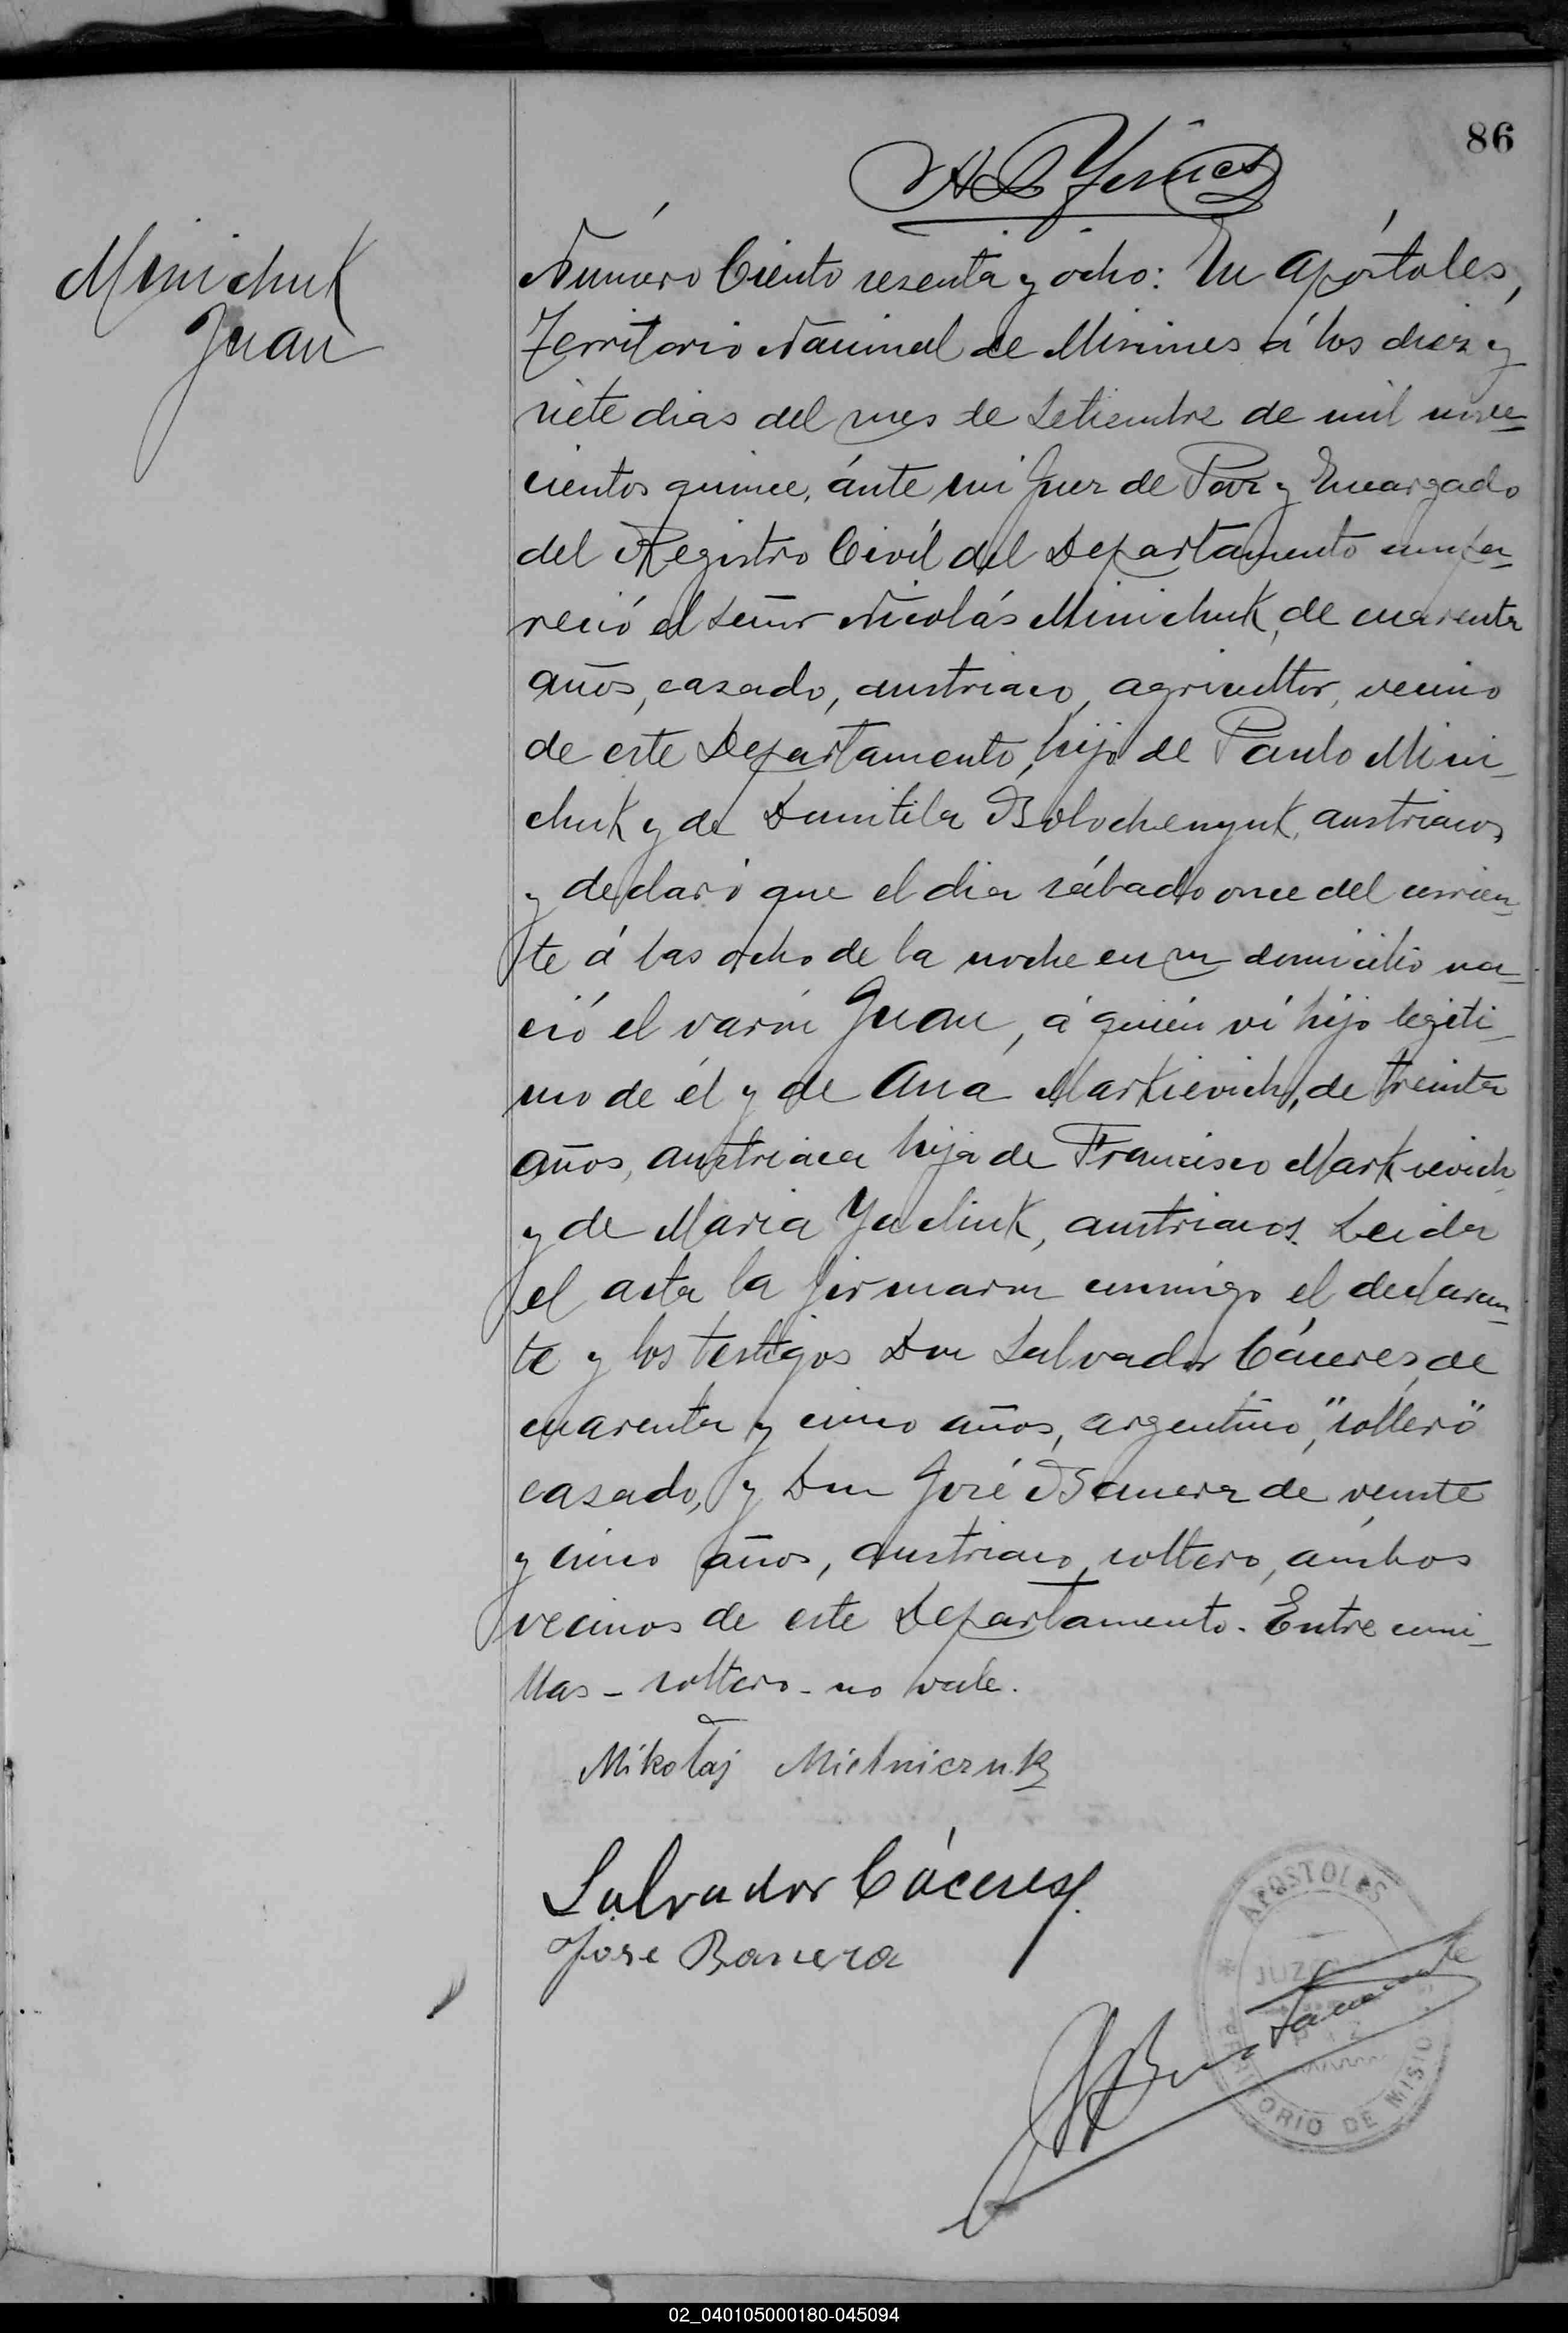 86
Minichuk
Juan
Número Ciento sesenta y ocho: En Apóstoles,
Territorio Nacional de Misiones á los diez y
siete dias del mes de Setiembre de mil nove-
cientos quince, ánte mi Juez de Paz y Encargado
del Registro Civíl del Departamento compa-
reció el señor Nicolás Minichuk, de cuarenta
años, casado, austriaco, agricultor, vecino
de este Departamento, hijo de Paulo Mini-
chuk y de Dumitila Bolochenyuk, austriacos
y declaró que el dia sábado once del corrien-
te á las ocho de la noche en su domicilio na-
ció el varón Juan, á quién ví hijo legíti-
mo de él y de Ana Markievich, de treinta
años, austriaca hija de Francisco Markievich
y de Maria Yachuk, austriacos. Leida
el acta la firmaron conmigo el declaran-
te y los testigos Don Salvador Cáceres, de
cuarenta y cinco años, argentino, "soltero"
casado, y Don José Banera de veinte
y cinco años, austriaco, soltero, ámbos
vecinos de este Departamento. Entre comi-
llas - soltero - no vale.
Mikołaj Mielniczuk
Salvador Cáceres
Jose Banera
APOSTOLES
JUZGADO
PAZ
TERRITORIO DE MISIO
02_040105000180-045094